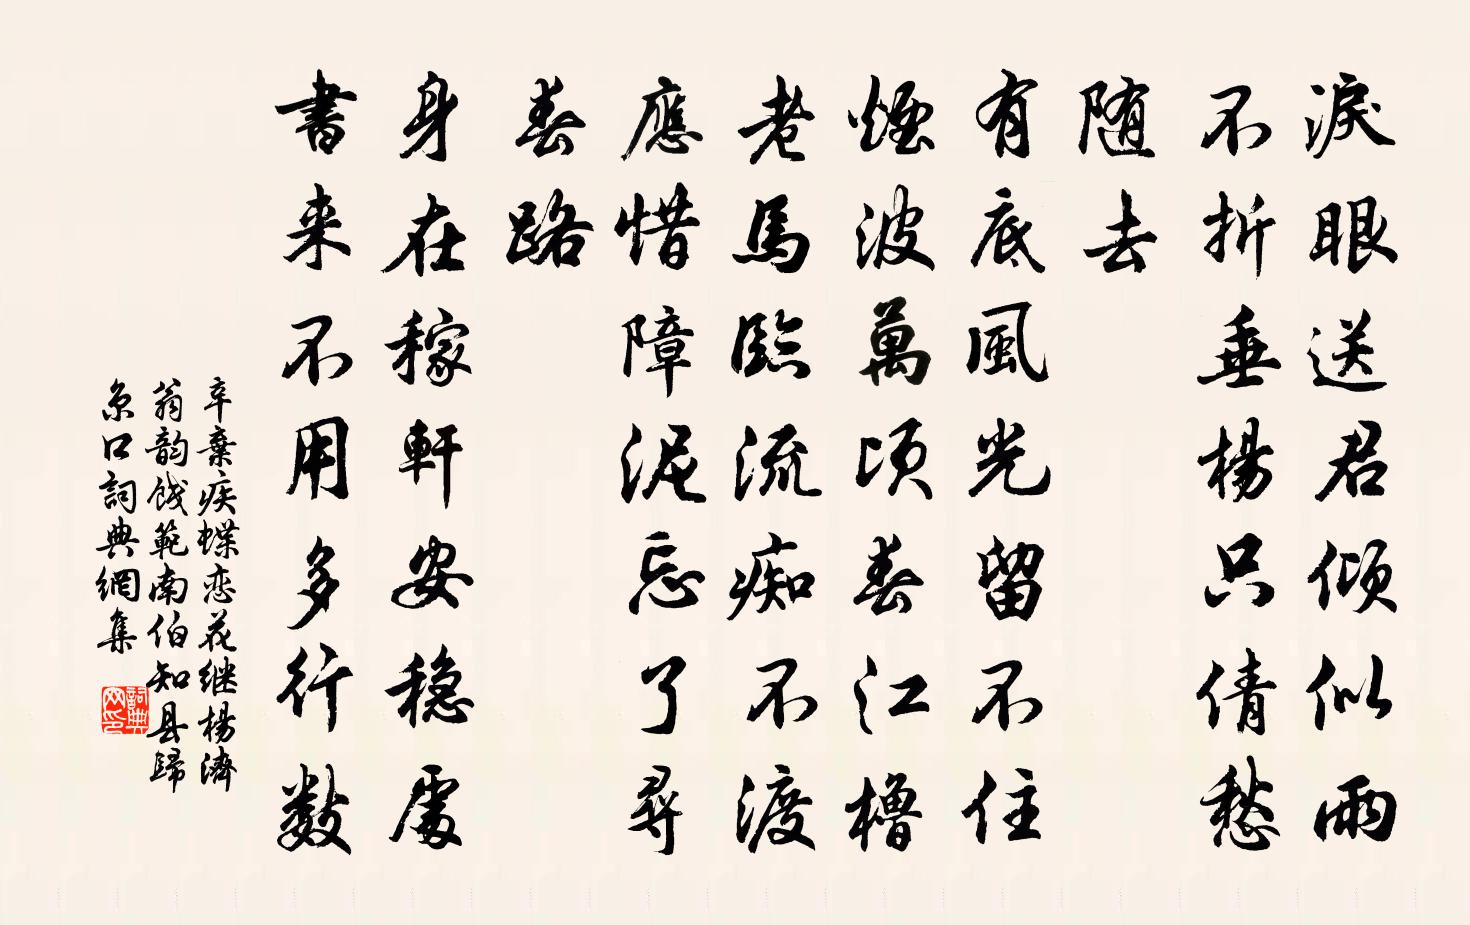 淚眼送君傾似雨
不折垂楊只倩愁
随去
有底風光留不住
煙波萬頃春江櫓
老馬臨流痴不渡
應惜障泥忘了尋
春路
身在稼軒安穩處
書来不用多行數
辛棄疾蝶恋花继楊濟
翁韵餞範南伯知县歸
京口詞典網集
詞典网印